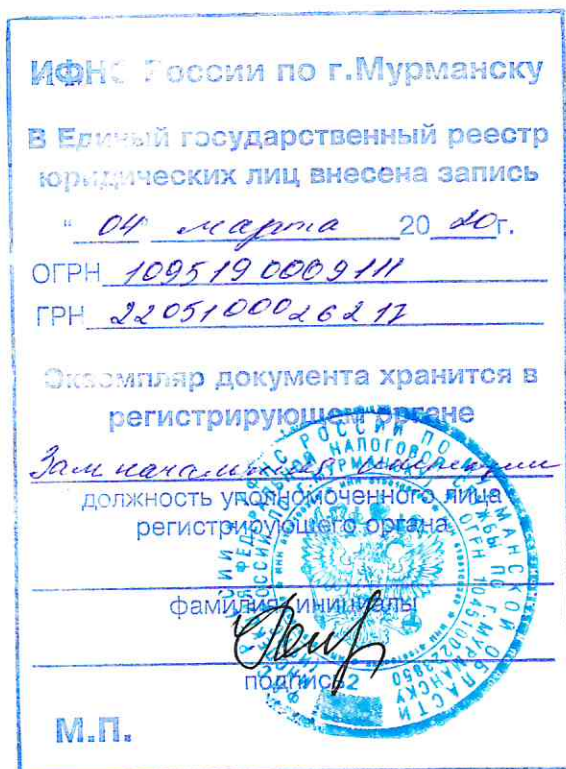 ИФНС России по г.Мурманску
В Единый государственный реестр
юридических лиц внесена запись
" 04 " марта 20 20 г.
ОГРН 1095190009111
ГРН 2205100026217
Экземпляр документа хранится в
регистрирующем органе
Зам начальника инспекции
должность уполномоченного лица
регистрирующего органа
фамилия, инициалы
подпись 2
М.П.
РОССИИ ПО МУРМАНСКОЙ ОБЛАСТИ
НАЛОГОВОЙ СЛУЖБЫ ПО Г.МУРМАНСКУ
ОГРН 1045100223850